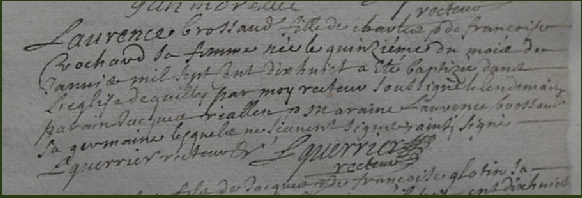 recteur
Laurence brossaud fille de charles & de francoise
rochaud sa femme née le quinzieme du mois de
Janvier mil sept cent dixhuict a eté baptizee dans
l'eglise de quilly par moy recteur soubsigné le lendemain
parain Jacques riallen marainne Laurence brossaud
sa germaine lesquels ne scavent signer ainsi signé
L guerrier recteur & L guerrier
recteur
fils de Jacques & de francoise glotin sa
cent dixhuict